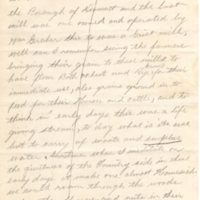 the Borough of Kennett and the last
mill was one owned and operated by
Wm Eicher this to was a Grist mill,
will can I remember seeing the farmers
bringing their grain to these mills to
have flour Buckwheat and Rye for their
immediate use, also grains ground in to
feed for their Horses and cattle, and to
think in early days this was a life
giving stream, to day what is its use
but to carry up waste and surplus
water,
the gristmills of the County aids in these
early days it makes one almost Homesick
we could roam through the woods